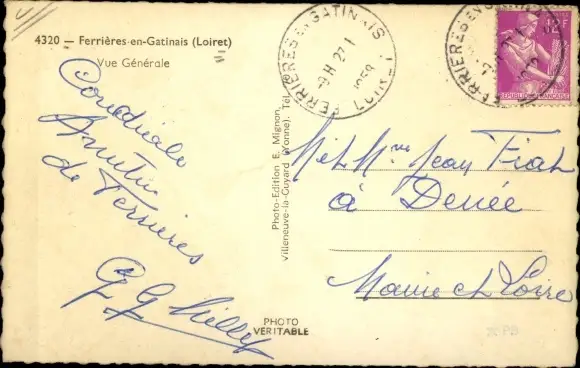 4320 — Ferrières-en-Gatinais (Loiret)
Vue Générale
Cordiale
Amitié
de Ferrières
G G
FERRIÈRES EN GATINAIS
9H 27 1
1958
LOIRET
FERRIÈRES EN
12F
REPUBLIQUE FRANÇAISE
Photo-Edition E. Mignon
Villeneuve-la-Guyard (Yonne). Tél.
M et Mme Jean
à Denée
Maine et Loire
PHOTO
VERITABLE